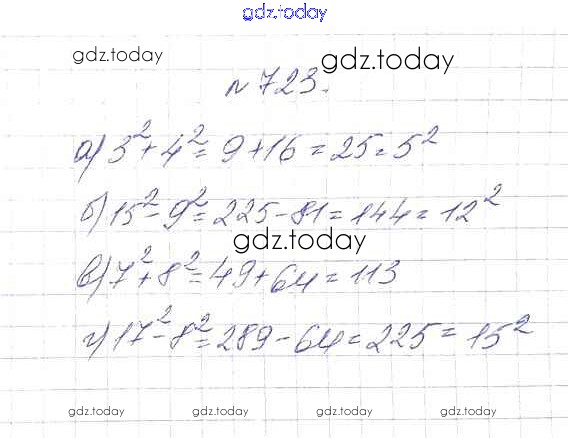 gdz.today
gdz.today
gdz.today
№ 723.
а) 3²+4²=9+16=25=5²
б) 15²-9²=225-81=144=12²
gdz.today
в) 7²+8²=49+64=113
г) 17²-8²=289-64=225=15²
gdz.today gdz.today gdz.today gdz.today